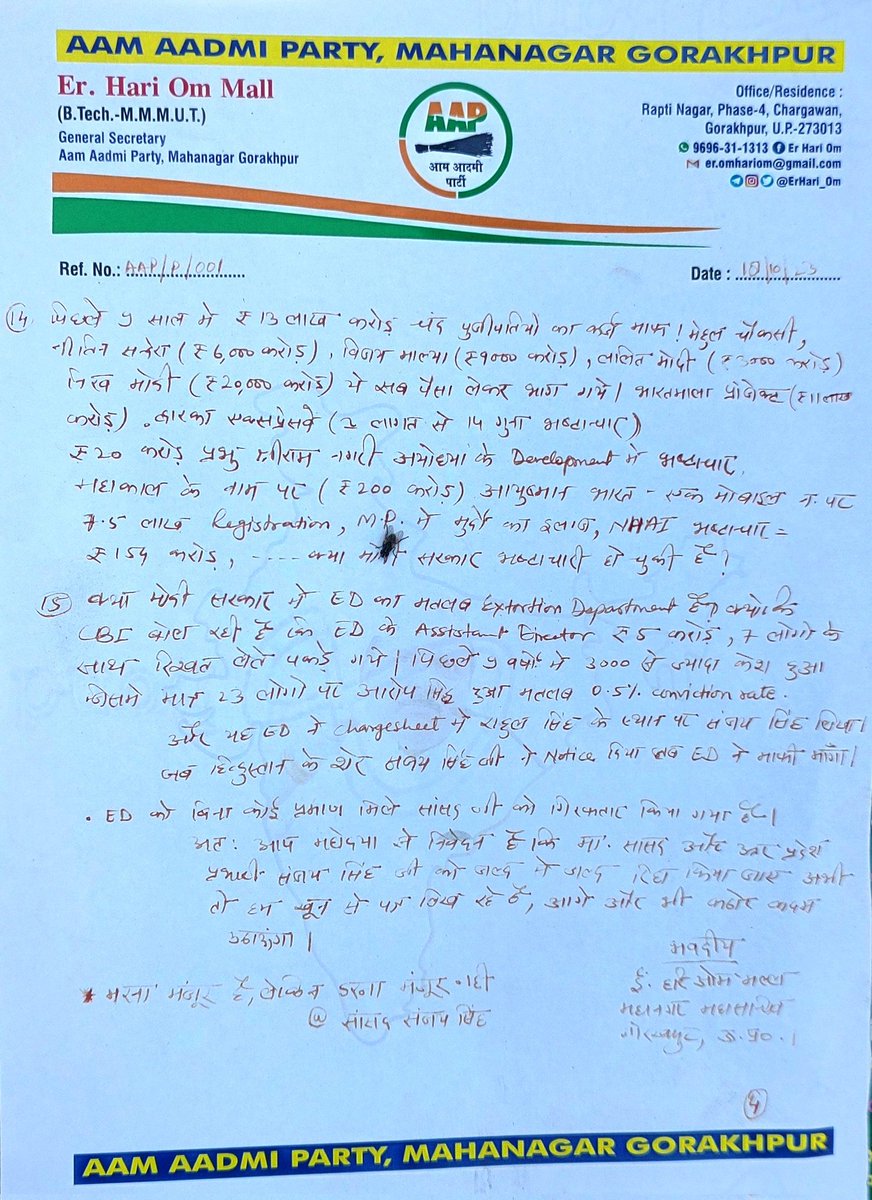 AAM AADMI PARTY, MAHANAGAR GORAKHPUR
Er. Hari Om Mall
(B.Tech.-M.M.M.U.T.)
General Secretary
Aam Aadmi Party, Mahanagar Gorakhpur
AAP
आम आदमी
पार्टी
Office/Residence :
Rapti Nagar, Phase-4, Chargawan,
Gorakhpur, U.P.-273013
9696-31-1313 Er Hari Om
er.omhariom@gmail.com
@ErHari_Om
Ref. No.: AAP/P/001
Date : 10/10/23
14. पिछले 9 साल में ₹13 लाख करोड़ चंद पुजीपतियो का कर्ज माफ! मेहुल चौकसी,
नीतिन सन्देसरा (₹6,000 करोड़), विजय माल्या (₹9000 करोड़), ललित मोदी (₹3000 करोड़)
निरव मोदी (₹20,000 करोड़) ये सब पैसा लेकर भाग गये। भारतमाला प्रोजेक्ट (₹11 लाख
करोड़). द्वारका एक्सप्रेसवे ( लागत से 14 गुना भ्रष्टाचार)
₹20 करोड़ प्रभु श्रीराम नगरी अयोध्या के Development में भ्रष्टाचार,
महाकाल के नाम पर (₹200 करोड़) आयुष्मान भारत - एक मोबाइल न. पर
7.5 लाख Registration, M.P. में मुर्दो का इलाज, NHAI भ्रष्टाचार =
₹154 करोड़, ---- क्या मोदी सरकार भ्रष्टाचारी हो चुकी है?
15. क्या मोदी सरकार में ED का मतलब Extortion Department है? क्योकि
CBI बोल रही है कि ED के Assistant Director ₹5 करोड़, 7 लोगो के
साथ रिश्वत लेते पकड़े गये। पिछले 9 वर्षो में 3000 से ज्यादा केश हुआ
जिसमे मात्र 23 लोगो पर आरोप सिद्ध हुआ मतलब 0.5% conviction rate.
और यह ED ने Chargesheet में राहुल सिंह के स्थान पर संजय सिंह लिखा।
जब हिन्दुस्तान के शेर संजय सिंह जी ने Notice दिया तब ED ने माफी माँगा।
. ED को बिना कोई प्रमाण मिले सांसद जी को गिरफ्तार किया गया है।
अत: आप महोदया से निवेदन है कि मा. सांसद और उत्तर प्रदेश
प्रभारी संजय सिंह जी को जल्द से जल्द रिहा किया जाए अभी
तो हम खून से पत्र लिख रहे है, आगे और भी कठोर कदम
उठाऊंगा।
भवदीय
* मरना मंजूर है, लेकिन डरना मंजूर नही
@ सांसद संजय सिंह
ई. हरि ओम मल्ल
महानगर महासचिव
गोरखपुर, उ.प्र०।
4
AAM AADMI PARTY, MAHANAGAR GORAKHPUR